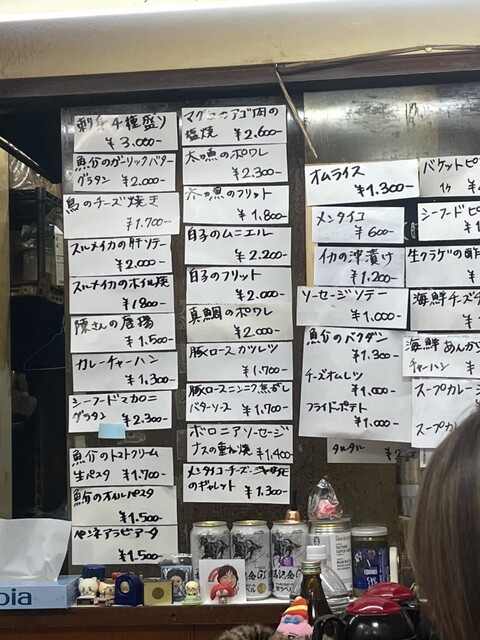 刺身4種盛り
¥3,000-
魚介のガーリックバター
グラタン ¥2,000-
鳥のチーズ焼き
¥1,700-
スルメイカの肝ソテー
¥2,000-
スルメイカのホイル焼
¥1800-
陳さんの唐揚
¥1,500-
カレーチャーハン
¥1,300-
シーフードマカロニ
グラタン ¥2,300-
魚介のトマトクリーム
生パスタ ¥1,700-
魚介のオイルパスタ
¥1,500-
ペンネアラビアータ
¥1,500-
マグロのアゴ肉の
塩焼 ¥2,600-
本日の魚のポワレ
¥2,300-
魚のフリット
¥1,800-
白子のムニエル
¥2,200-
白子のフリット
¥2,000-
真鯛のポワレ
¥2,000-
豚ロースカツレツ
¥1,700-
豚ロースニンニク焦がし
バターソース ¥1,700-
ボロニアソーセージ
ナスの重ね焼 ¥1,400-
メンタイコチーズ
のギャレット ¥1,300-
オムライス
¥1,300-
メンタイコ
¥600-
イカの沖漬け
¥1,200-
ソーセージソテー
¥1,000-
魚介のバクダン
¥1,300-
チーズオムレツ
¥1,000-
フライドポテト
¥1,000-
タルタル
バケットピ
シーフードピ
生クラゲの酢
海鮮チーズチ
海鮮あんか
チャーハン ¥
スープカレー
スープカ
pia